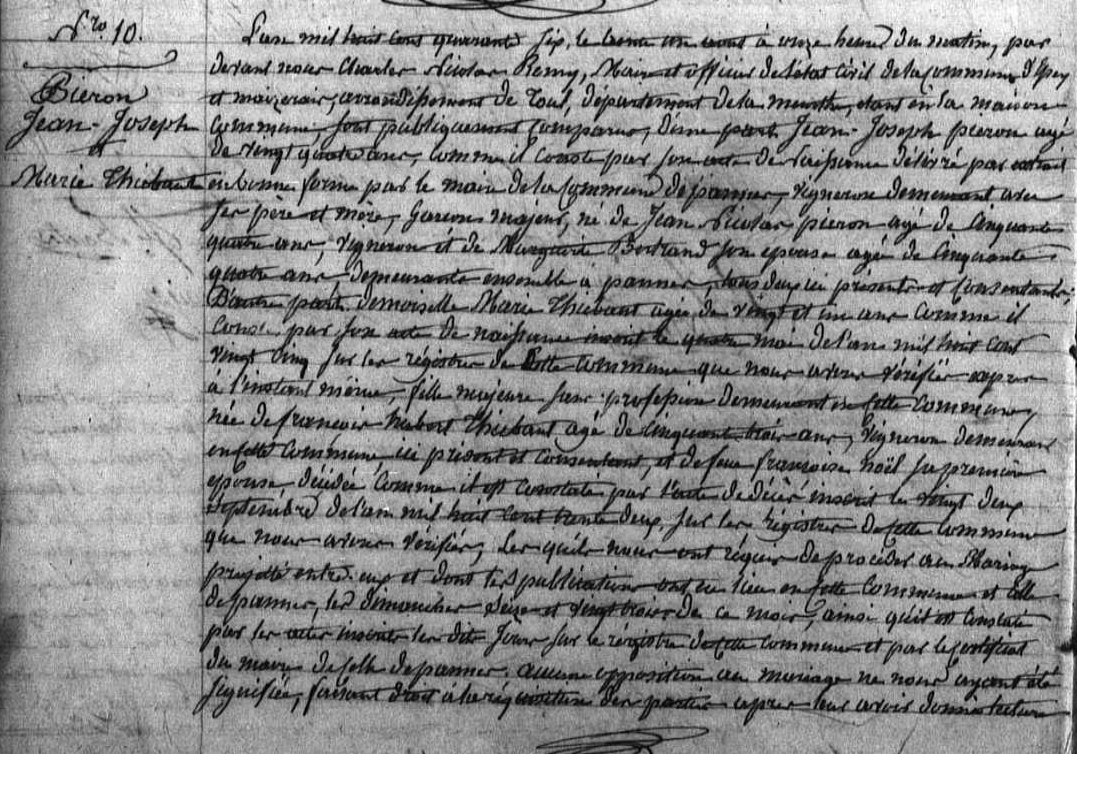 Nro 10.
Pieron
Jean-Joseph
et
Marie Thiébaut
L'an mil huit cent quarante six, le trente un aout à onze heures du matin, par
devant nous Charles Nicolas Remy, Maire et officier de l'état civil de la commune d'Essey
et maizerais, arrondissement de Toul, département de la meurthe, étant en la maison
Commune, sont publiquement Comparus, D'une part Jean-Joseph pieron agé
de vingt quatre ans, comme il Conste par son acte de Naissance délivré par extrait
en bonne forme par le maire de la Commune de pannes, vigneron demeurant avec
ses père et mère, Garcon majeur, né de Jean Nicolas pieron agé de Cinquante
quatre ans, vigneron et de Marguerite Bertrand son epouse agée de Cinquante
quatre ans demeurants ensemble à pannes, tous deux ici présents et Consentants;
D'autre part demoiselle Marie Thiébaut agée de vingt et un ans Comme il
Conste par son acte de naissance inscrit le quatre mai de l'an mil huit cent
vingt Cinq sur les régistres de Cette Commune que nous avons vérifiés
à l'instant même, fille majeure sans profession demeurant en Cette Commune,
née de francois hubert Thiébaut agé de Cinquante trois ans, vigneron demeurant
en Cette Commune ici présent et Consentant, et de feue francoise noël sa première
epouse décédée Comme il est Constaté par l'acte de décès inscrit le vingt deux
Septembre de l'an mil huit Cent trente deux, sur les régistres de Cette Commune
que nous avons vérifiés, Les quels nous ont réquis de procéder au Mariage
projetté entre eux et dont les publications ont eu lieu en Cette Commune et celle
de pannes, les dimanches Seize et vingt trois de ce mois, ainsi qu'il est Constaté
par les actes inscrits les dits Jours sur le régistre de Cette Commune et par le Certificat
du maire de Celle de pannes. aucune opposition au mariage ne nous ayant été
signifiée, faisant droit à la réquisition des parties apres leur avoir donné lecture